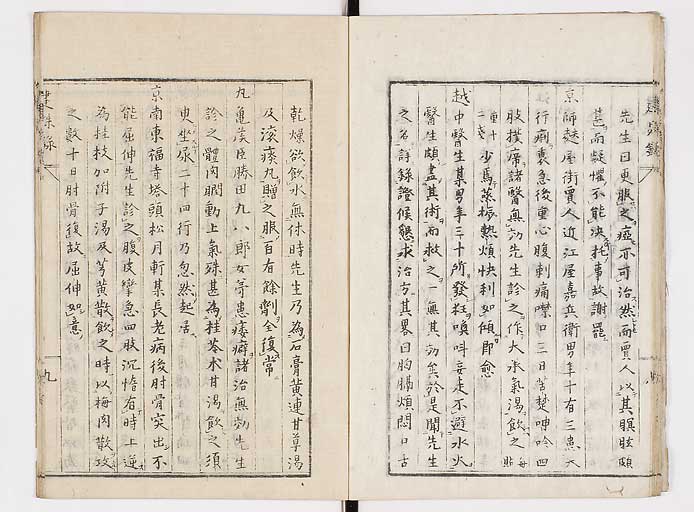 先生曰更服之癌不可治然而賈人以其瞑眩頗
甚而疑懼不能決托事故謝罷
京師麩屋街賈人近江屋嘉兵衛男年十有三患大
行痢裏急後重心腹刺痛噤口三日苦楚呻吟四
肢撲席諸醫無効先生診之作大承氣湯飲之每貼
重十二錢少焉蒸振熱煩快利如傾即愈
越中醫生某男年三十所發狂喚叫妄走不避水火
醫生頗盡其術而救之一無其効矣於是聞先生
之名詳錄證候懇求治方其畧曰胸膈煩悶口舌
建珠錄
乾燥欲飲水無休時先生乃為石膏黃連甘草湯
及滾痰丸贈之服百有餘劑全復常
丸龜侯臣勝田九八郎女弟患痿癖諸治無効先生
診之體肉瞤動上氣殊甚為桂苓朮甘湯飲之須
臾坐尿二十四行乃忽然起居
京南東福寺塔頭松月軒某長老病後肘骨突出不
能屈伸先生診之腹皮攣急四肢沉惰有時上逆
為桂枝加附子湯及芎黃散飲之時以梅肉散攻
之數十日肘骨復故屈伸如意
建珠錄
九